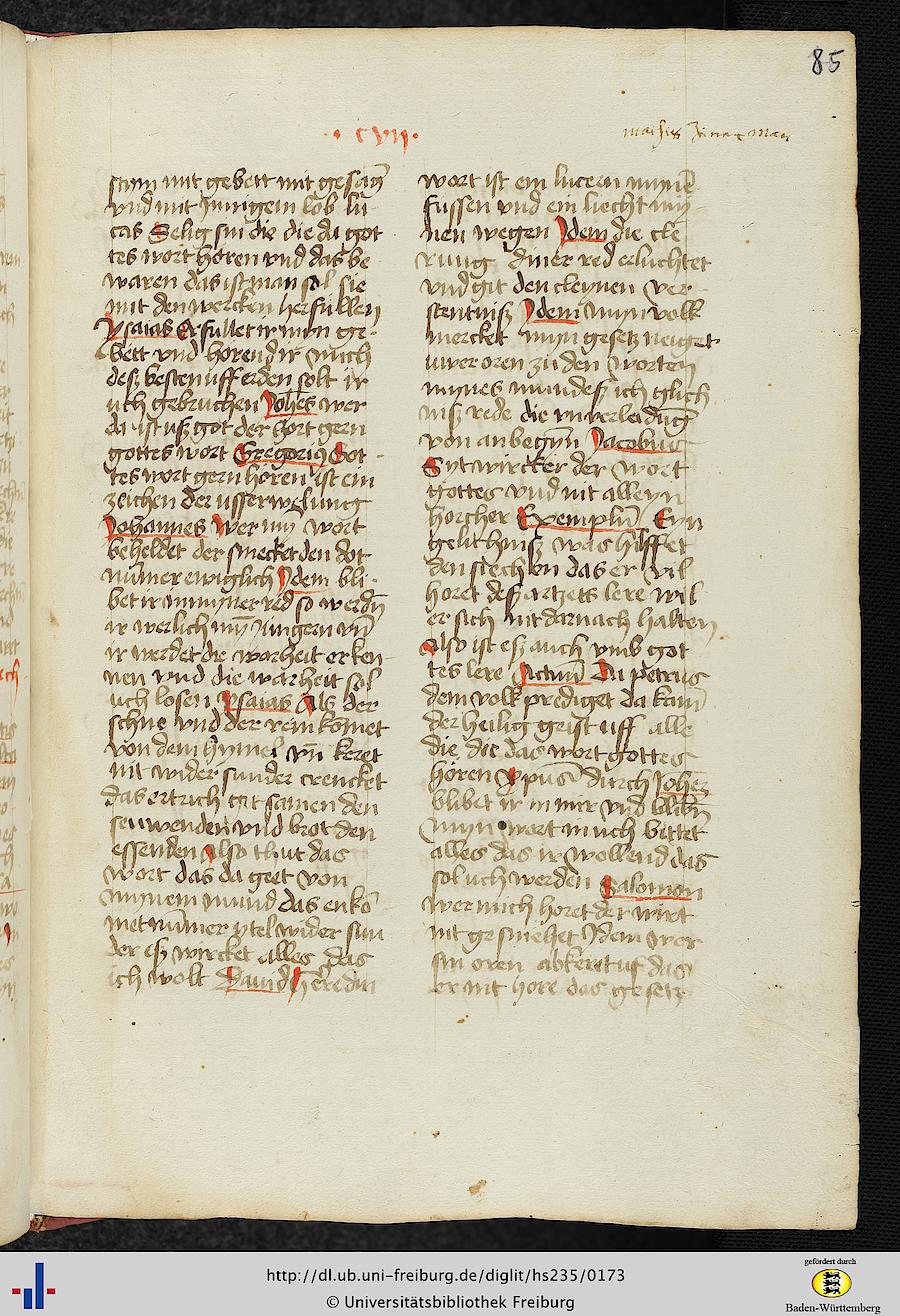 85
· cvii ·
stym mit gebett mit gesang
vnd mit Innigem lob lu
cas Selig sin die die da got
tes wort horen vnd das be
waren das ist man sol sie
mit den wercken herfullen
Ysaias Erfullet ir myn ge
bett vnd horend ir mich
desz besten uff erden solt ir
uch gebruchen Johes wer
da ist usz got der hort gern
gottes wort Gregorius Got
tes wort gern horen ist ein
zeichen der usserwelung
Johannes Wer myn wort
beheldet der smecket den dot
nümer ewiglich Idem bli
bet ir in myner red so werdn
ir werlich myn Jungern vn
ir werdet die warheit erken
nen vnd die warheit sol
uch losen Ysaias Als der
schne vnd der rein komet
von dem hymel vn keret
nit wider sunder trencket
das ertrich git samen den
vnd brot den
essenden also thut das
wort das da geet von
mynem mund das enko
met nümer ytel wider sun
der esz wircket alles das
ich wolt Dauid Her din
wort ist ein lucern mynen
fussen vnd ein liecht my
nen wegen Idem die cle
rung diner red erluchtet
vnd git den cleynen ver
stentnisz Idem myn volk
mercket myn gesetz neiget
uwer oren zu den worten
mynes mundesz ich
rede die
von anbegyn Jacobus
Syt wircker der wort
gottes vnd nit alleyn
horcher Exemplum Eyn
gelichnisz was hilffet
den siechen das er vil
horet desz artzets lere wil
er sich nit darnach halten
also ist esz auch vmb got
tes lere Actum Da petrus
dem volk prediget da kam
der heilig geist uff alle
die die das wort gottes
horen durch Johes
blibet ir in mir vnd blibn
myn wort in uch bittet
alles das ir wollend das
sol uch werden Salomon
wer mich horet der wirt
nit gesmehet Idem wer
sin oren abkeret uf das
er nit hore das gesetz
http://dl.ub.uni-freiburg.de/diglit/hs235/0173
© Universitätsbibliothek Freiburg
gefördert durch
Baden-Württemberg